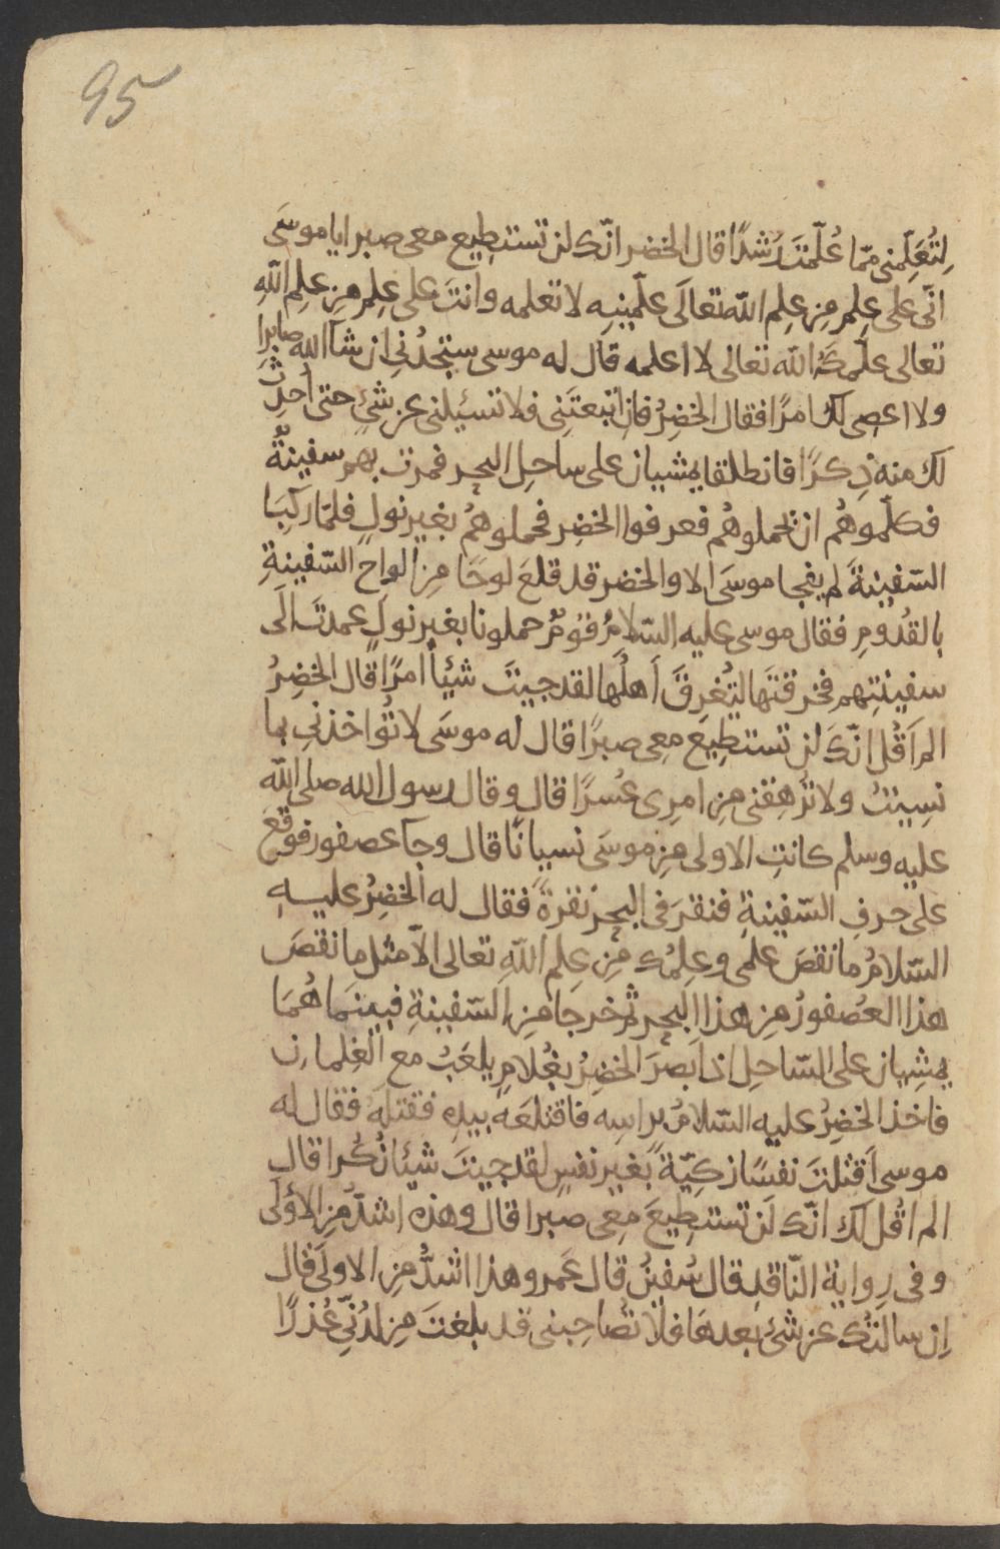 95
لِتُعَلِّمنى ممّا عُلّمتَ رُشدًا قال الخضر انّك لن تستطيع معى صبرا يا موسَى
انّى على علمٍ مِن عِلم الله تعالَى علّمنيه لا تعلمه وانتَ على عِلمٍ مِن علِم اللهِ
تعالى علّمكَهُ الله تعالى لا اعلمه قال له موسى ستجدُنِى ان شآ الله صابرا
ولا اعصى لك امرًا فقال الخضِرُ فانِ اتبعتَنِى فلا تسئيلنى عن شئٍ حتى اُحدِثَ
لك منه ذِكرًا فانطلقا يمشيان على ساحِل البحر فمرت بهم سفينةٌ
فكلّموهُم ان يحملوهُم فعرفوا الخضِر فحملوهُم بغير نولٍ فلمّا ركِبَا
السّفينةَ لم يفجا موسَى الا والخضر قد قلعَ لوحًا مِن الواح السّفينةِ
بالقدُومِ فقال موسى عليه السّلامُ قومٌ حملونا بغير نولٍ عمدتَ الَى
سفينتِهم فخرقتَها لتُغرِقَ اَهلَها لقد جيتَ شيئاً امرًا قال الخضِرُ
الم اَقُل انّكَ لن تستطِيعَ معِى صبرًا قال له موسَى لا تُواخذنِى بما
نسِيتُ ولا تُرهِقنى مِن امرِى عُسرًا قال وقال رسول الله صلى الله
عليه وسلم كانتِ الاولى مِن موسَى نسيانًا قال وجآ عصفور فوقعَ
على حرفِ السّفينةِ فنقرَ فى البحرِ نقرةً فقال له الخضِرُ عليهِ
السّلامُ ما نقصَ علمى وعِلمُك مِن عِلم اللهِ تعالى الاّ مثل ما نقصَ
هذا العُصفورُ مِن هذا البحرِ ثم خرجا مِن السّفينةِ فبينَما هُمَا
يمشِيان على السّاحِل اذ ابصرَ الخضِرُ بغُلامٍ يلعَبُ مع الغِلمان
فاخذ الخضِرُ عليه السّلامُ براسِه فاقتلعَهُ بيدِهِ فقتلهُ فقال له
موسى اَقتلتَ نفسًا زكِيّةً بغير نفسٍ لقد جيتَ شيئا نُكُرا قال
الم اقُل لك انّك لَن تستطِيعَ معِى صبرا قال وهذه اشدُّ مِن الاُولَى
وفى رِواية النّاقد قال سُفينُ قال عَمرو هذا اشدُّ مِن الاولَى قال
اِن سالتُك عن شئٍ بعدهَا فلا تُصاحِبنى قد بلغتَ مِن لدُنِّى عُذرًا